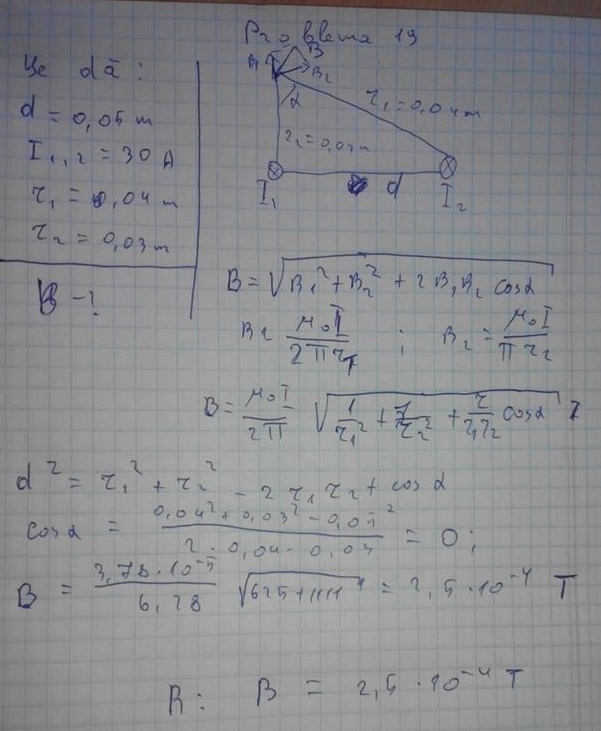 Problema 19
Se dă:
d = 0,05 m
I₁,₂ = 30 A
r₁ = 0,04 m
r₂ = 0,03 m
B - ?
B₁ B
B₂
α
r₁ = 0,04 m
r₂ = 0,03 m
I₁ d I₂
B = √(B₁² + B₂² + 2 B₁ B₂ cos α)
B₁ = μ₀I / 2πr₁ ; B₂ = μ₀I / πr₂
B = μ₀I / 2π √(1/r₁² + 1/r₂² + 2/r₁r₂ cos α) ;
d² = r₁² + r₂² - 2 r₁ r₂ + cos α
cos α = (0,04² + 0,03² - 0,05²) / (2 · 0,04 · 0,03) = 0 ;
B = 3,78 · 10⁻⁵ / 6,28 √(625 + 1111) = 2,5 · 10⁻⁴ T
R: B = 2,5 · 10⁻⁴ T